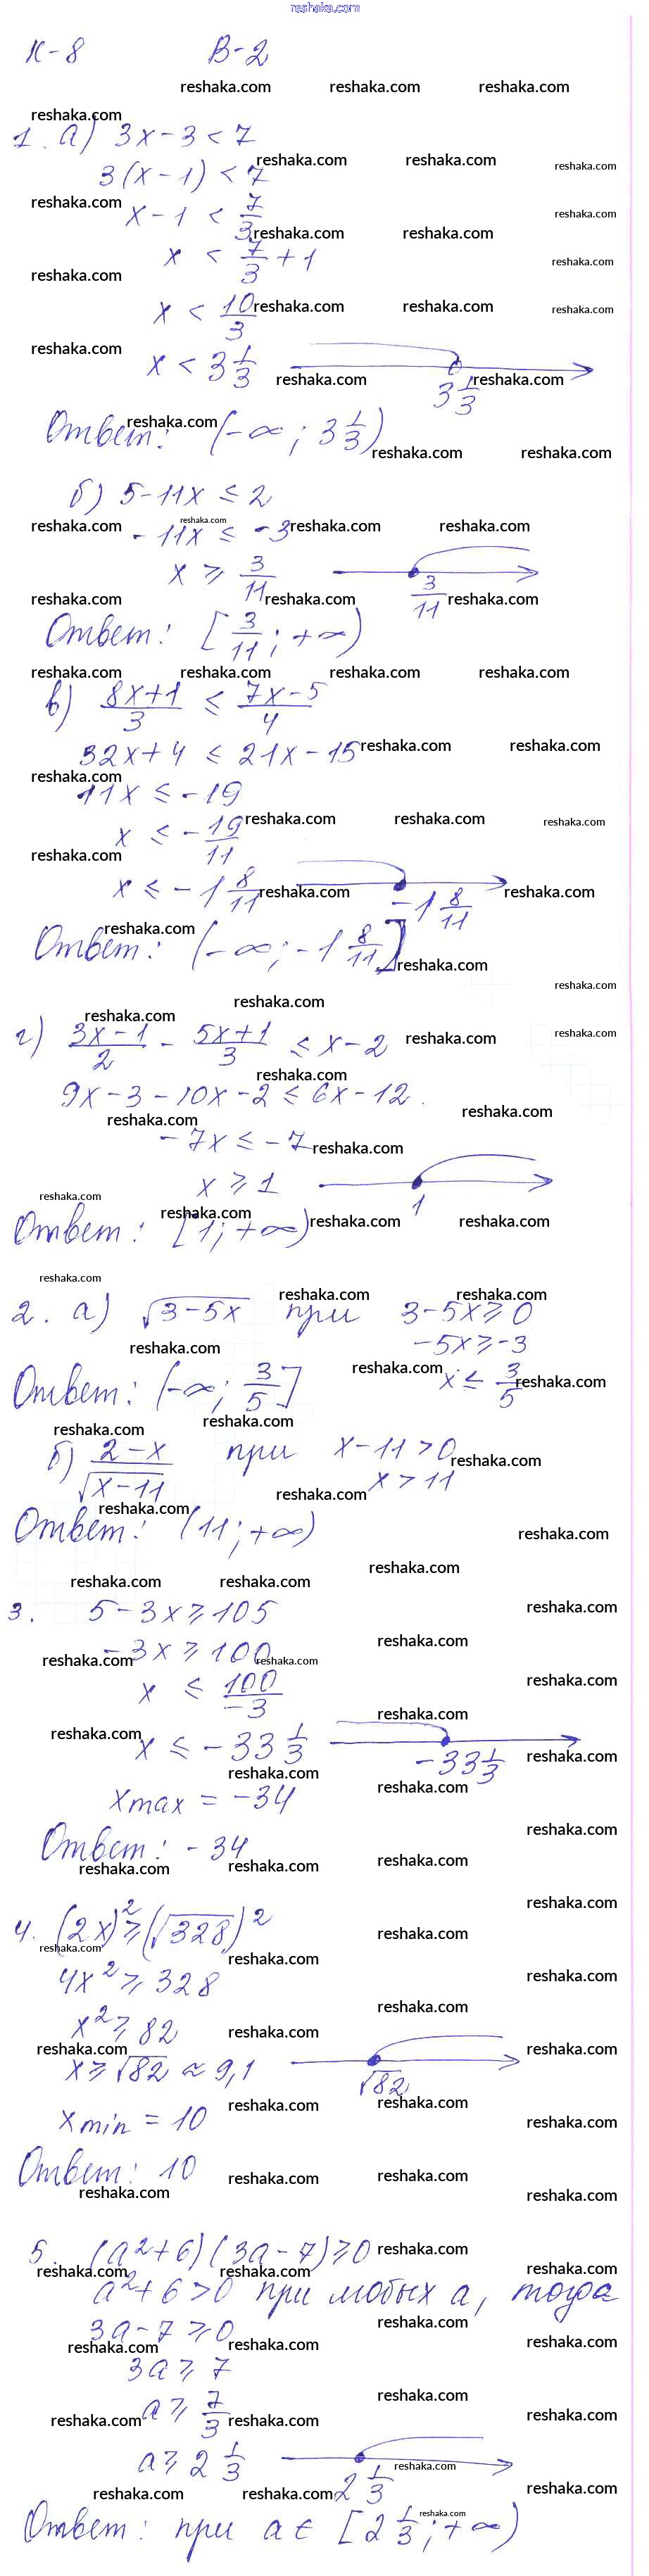 reshaka.com
К-8 В-2
1. а) 3x - 3 < 7
3(x - 1) < 7
x - 1 < 7/3
x < 7/3 + 1
x < 10/3
x < 3 1/3
3 1/3
Ответ: (-∞; 3 1/3)
б) 5 - 11x ≤ 2
-11x ≤ -3
x ≥ 3/11
3/11
Ответ: [3/11; +∞)
в) (8x+1)/3 ≤ (7x-5)/4
32x + 4 ≤ 21x - 15
11x ≤ -19
x ≤ -19/11
x ≤ -1 8/11
-1 8/11
Ответ: (-∞; -1 8/11]
г) (3x-1)/2 - (5x+1)/3 ≤ x - 2
9x - 3 - 10x - 2 ≤ 6x - 12.
-7x ≤ -7
x ≥ 1
1
Ответ: [1; +∞)
2. а) √(3-5x) при 3 - 5x ≥ 0
-5x ≥ -3
x ≤ 3/5
Ответ: (-∞; 3/5]
б) (2-x)/√(x-11) при x - 11 > 0
x > 11
Ответ: (11; +∞)
3. 5 - 3x ≥ 105
-3x ≥ 100
x ≤ 100/-3
x ≤ -33 1/3
-33 1/3
x max = -34
Ответ: -34
4. (2x)² ≥ (√328)²
4x² ≥ 328
x² ≥ 82
x ≥ √82 ≈ 9,1
√82
x min = 10
Ответ: 10
5. (a²+6)(3a-7) ≥ 0
a²+6 > 0 при любых a, тогда
3a - 7 ≥ 0
3a ≥ 7
a ≥ 7/3
a ≥ 2 1/3
2 1/3
Ответ: при a ∈ [2 1/3; +∞)